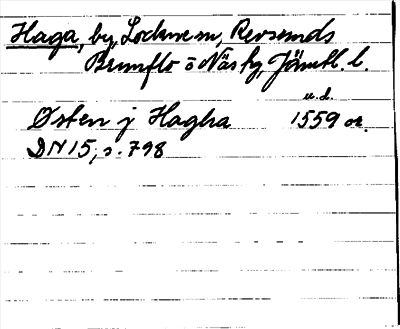 Haga, by, Lockne sn, Revsunds
Brunflo o Näs tg, Jämtl. l.
u.d.
Østen j Hagha 1559 or.
DN 15, s. 798